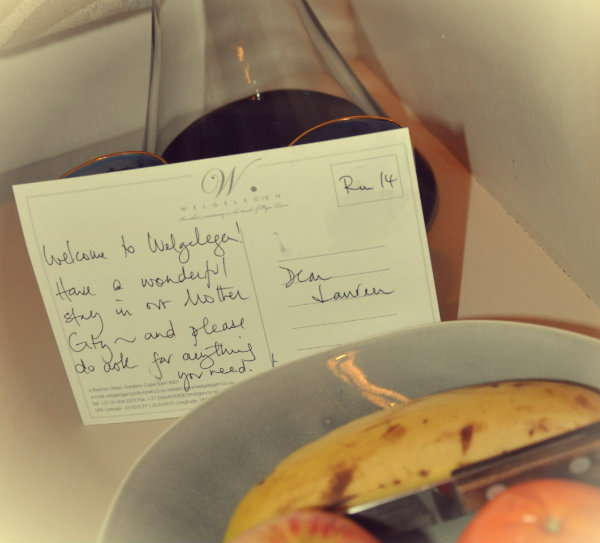 W.
WELGELEGEN
Rm 14
Welcome to Welgelegen!
Have a wonderful
stay in our Mother
City ~ and please
do ask for anything
you need.
Dear
Laureen
6 Stephen Street, Gardens, Cape Town 8001